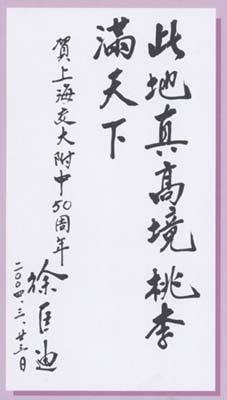 此地真高境桃李
滿天下
賀上海交大附中50周年
徐匡迪
二〇〇四.三.廿三日